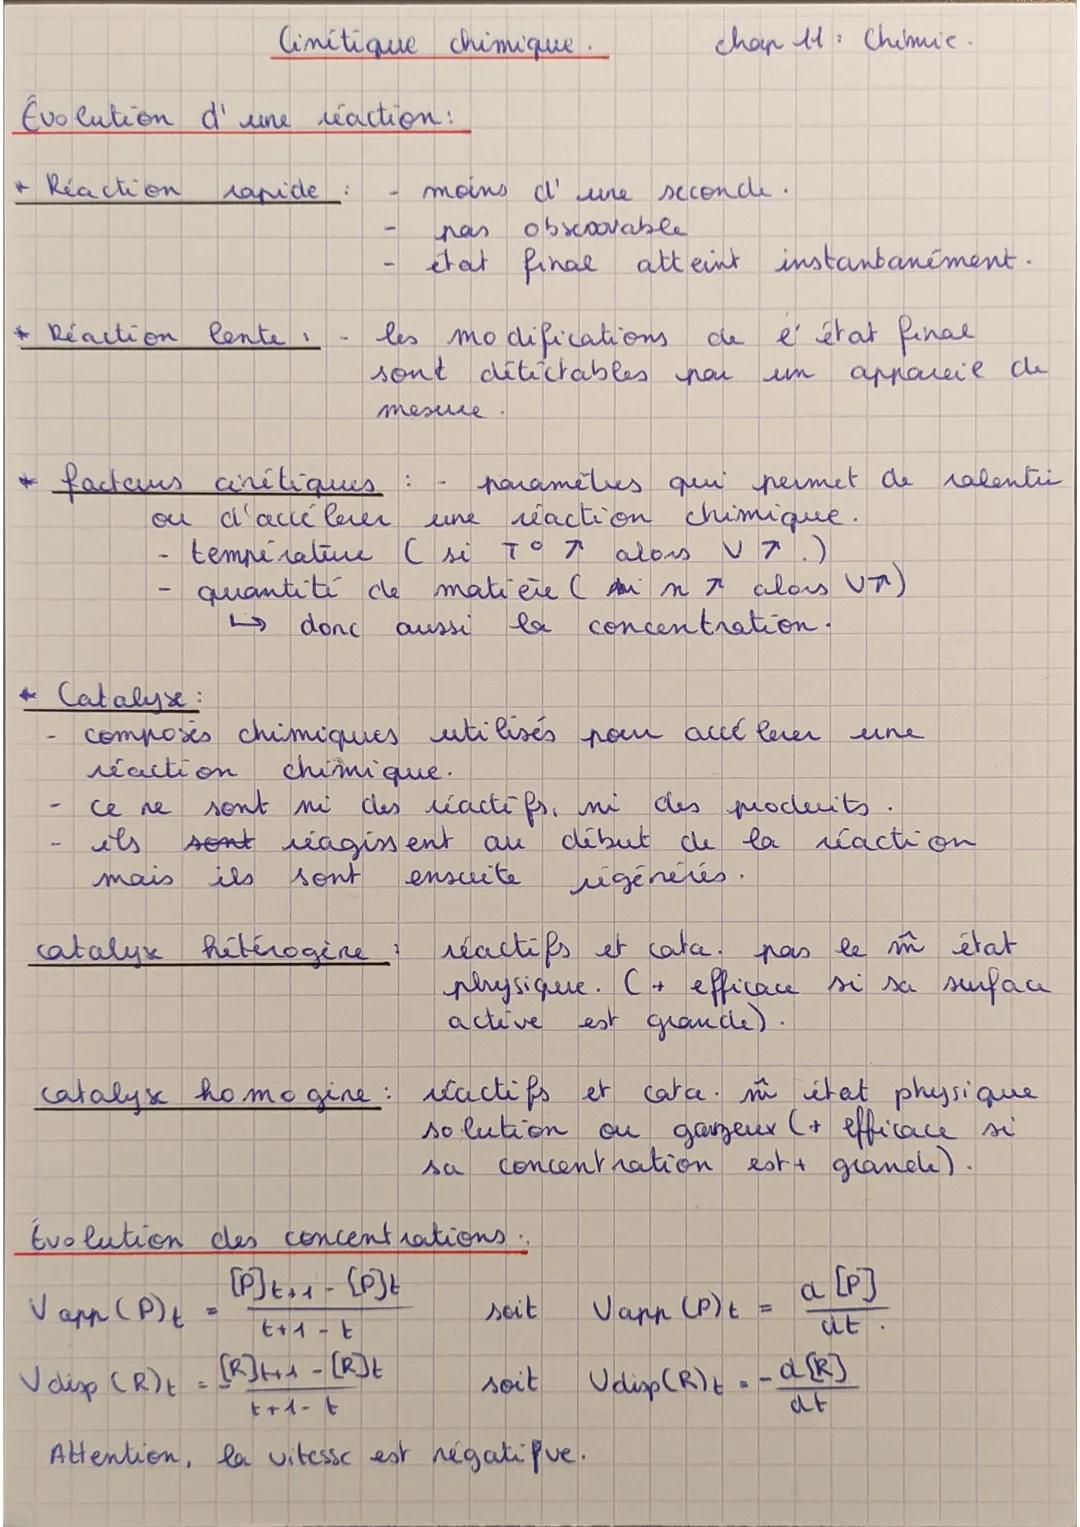 Cinétique chimique. chap 11 : Chimie.
Évolution d'une réaction :
* Réaction rapide : - moins d'une seconde.
- pas observable
- état final atteint instantanément.
* Réaction lente : - les modifications de l'état final
sont détectables par un appareil de
mesure.
* facteurs cinétiques : - paramètres qui permet de ralentir
ou d'accélerer une réaction chimique.
- température ( si T° ↗ alors V ↗.)
- quantité de matière ( si n ↗ alors V↗)
↳ donc aussi la concentration.
* Catalyse :
- composés chimiques utilisés pour accélerer une
réaction chimique.
- ce ne sont ni des réactifs, ni des produits.
- ils sont réagissent au début de la réaction
mais ils sont ensuite régénérés.
catalyse hétérogène : réactifs et cata. pas le m̂ état
physique. (+ efficace si sa surface
active est grande).
catalyse homogène : réactifs et cata. m̂ état physique
solution ou gazeux (+ efficace si
sa concentration est + grande).
Évolution des concentrations :
Vapp(P)t = [P]t+1 - [P]t / t+1 - t soit Vapp(P)t = d[P] / dt.
Vdisp(R)t = - [R]t+1 - [R]t / t+1 - t soit Vdisp(R)t = - d[R] / dt
Attention, la vitesse est négatifve.